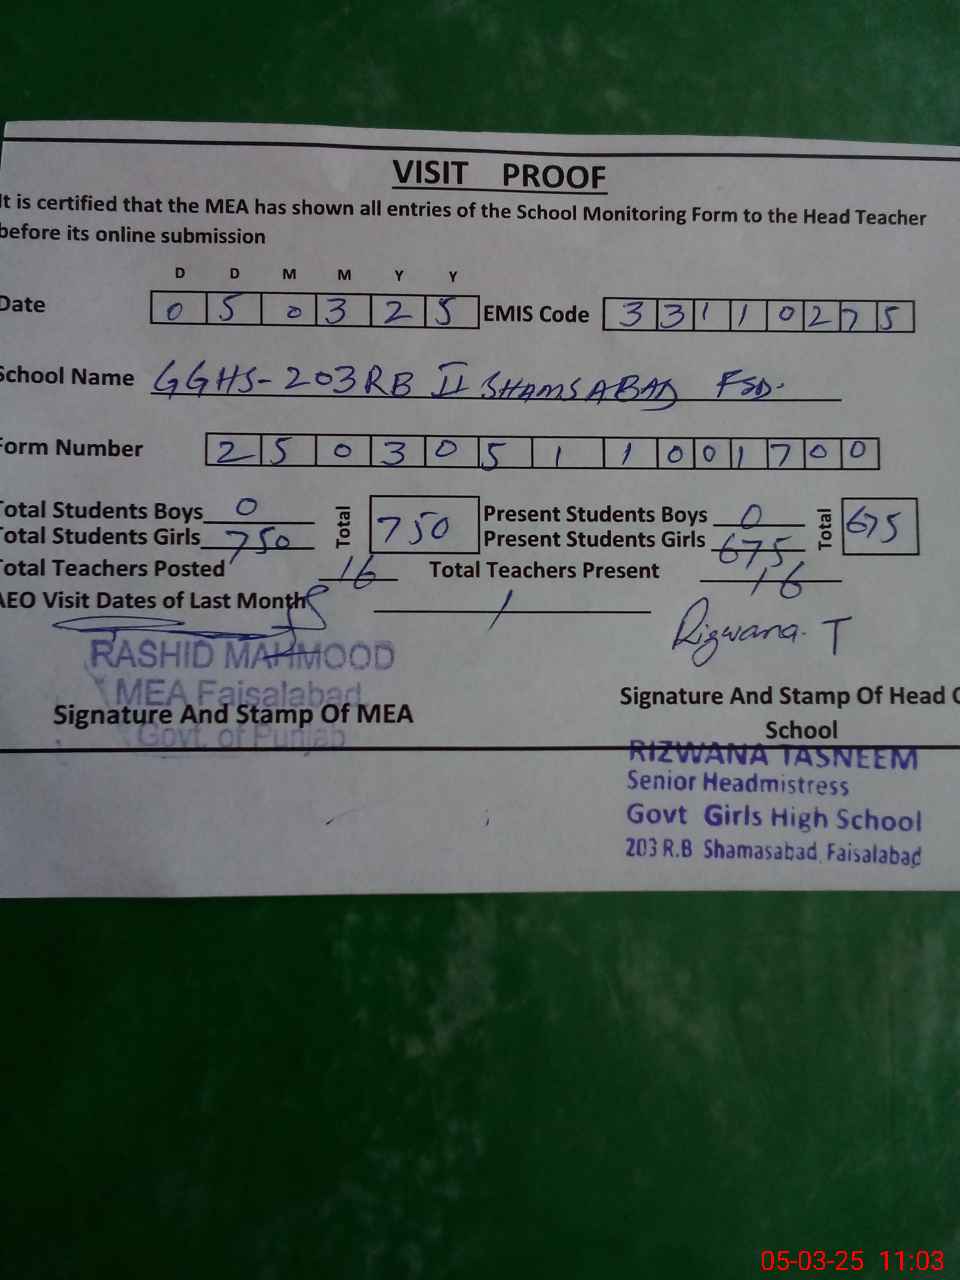 VISIT PROOF
It is certified that the MEA has shown all entries of the School Monitoring Form to the Head Teacher
before its online submission
D D M M Y Y
Date 0 5 0 3 2 5 EMIS Code 3 3 1 1 0 2 7 5
School Name GGHS-203RB II SHAMSABAD FSD.
Form Number 2 5 0 3 0 5 1 1 0 0 1 7 0 0
Total Students Boys 0 Total 750 Present Students Boys 0 Total 675
Total Students Girls 750 Present Students Girls 675
Total Teachers Posted 16 Total Teachers Present 16
AEO Visit Dates of Last Month /
Rizwana. T
RASHID MAHMOOD
MEA Faisalabad
Govt. of Punjab
Signature And Stamp Of MEA
Signature And Stamp Of Head O
School
RIZWANA TASNEEM
Senior Headmistress
Govt Girls High School
203 R.B Shamasabad, Faisalabad
05-03-25 11:03